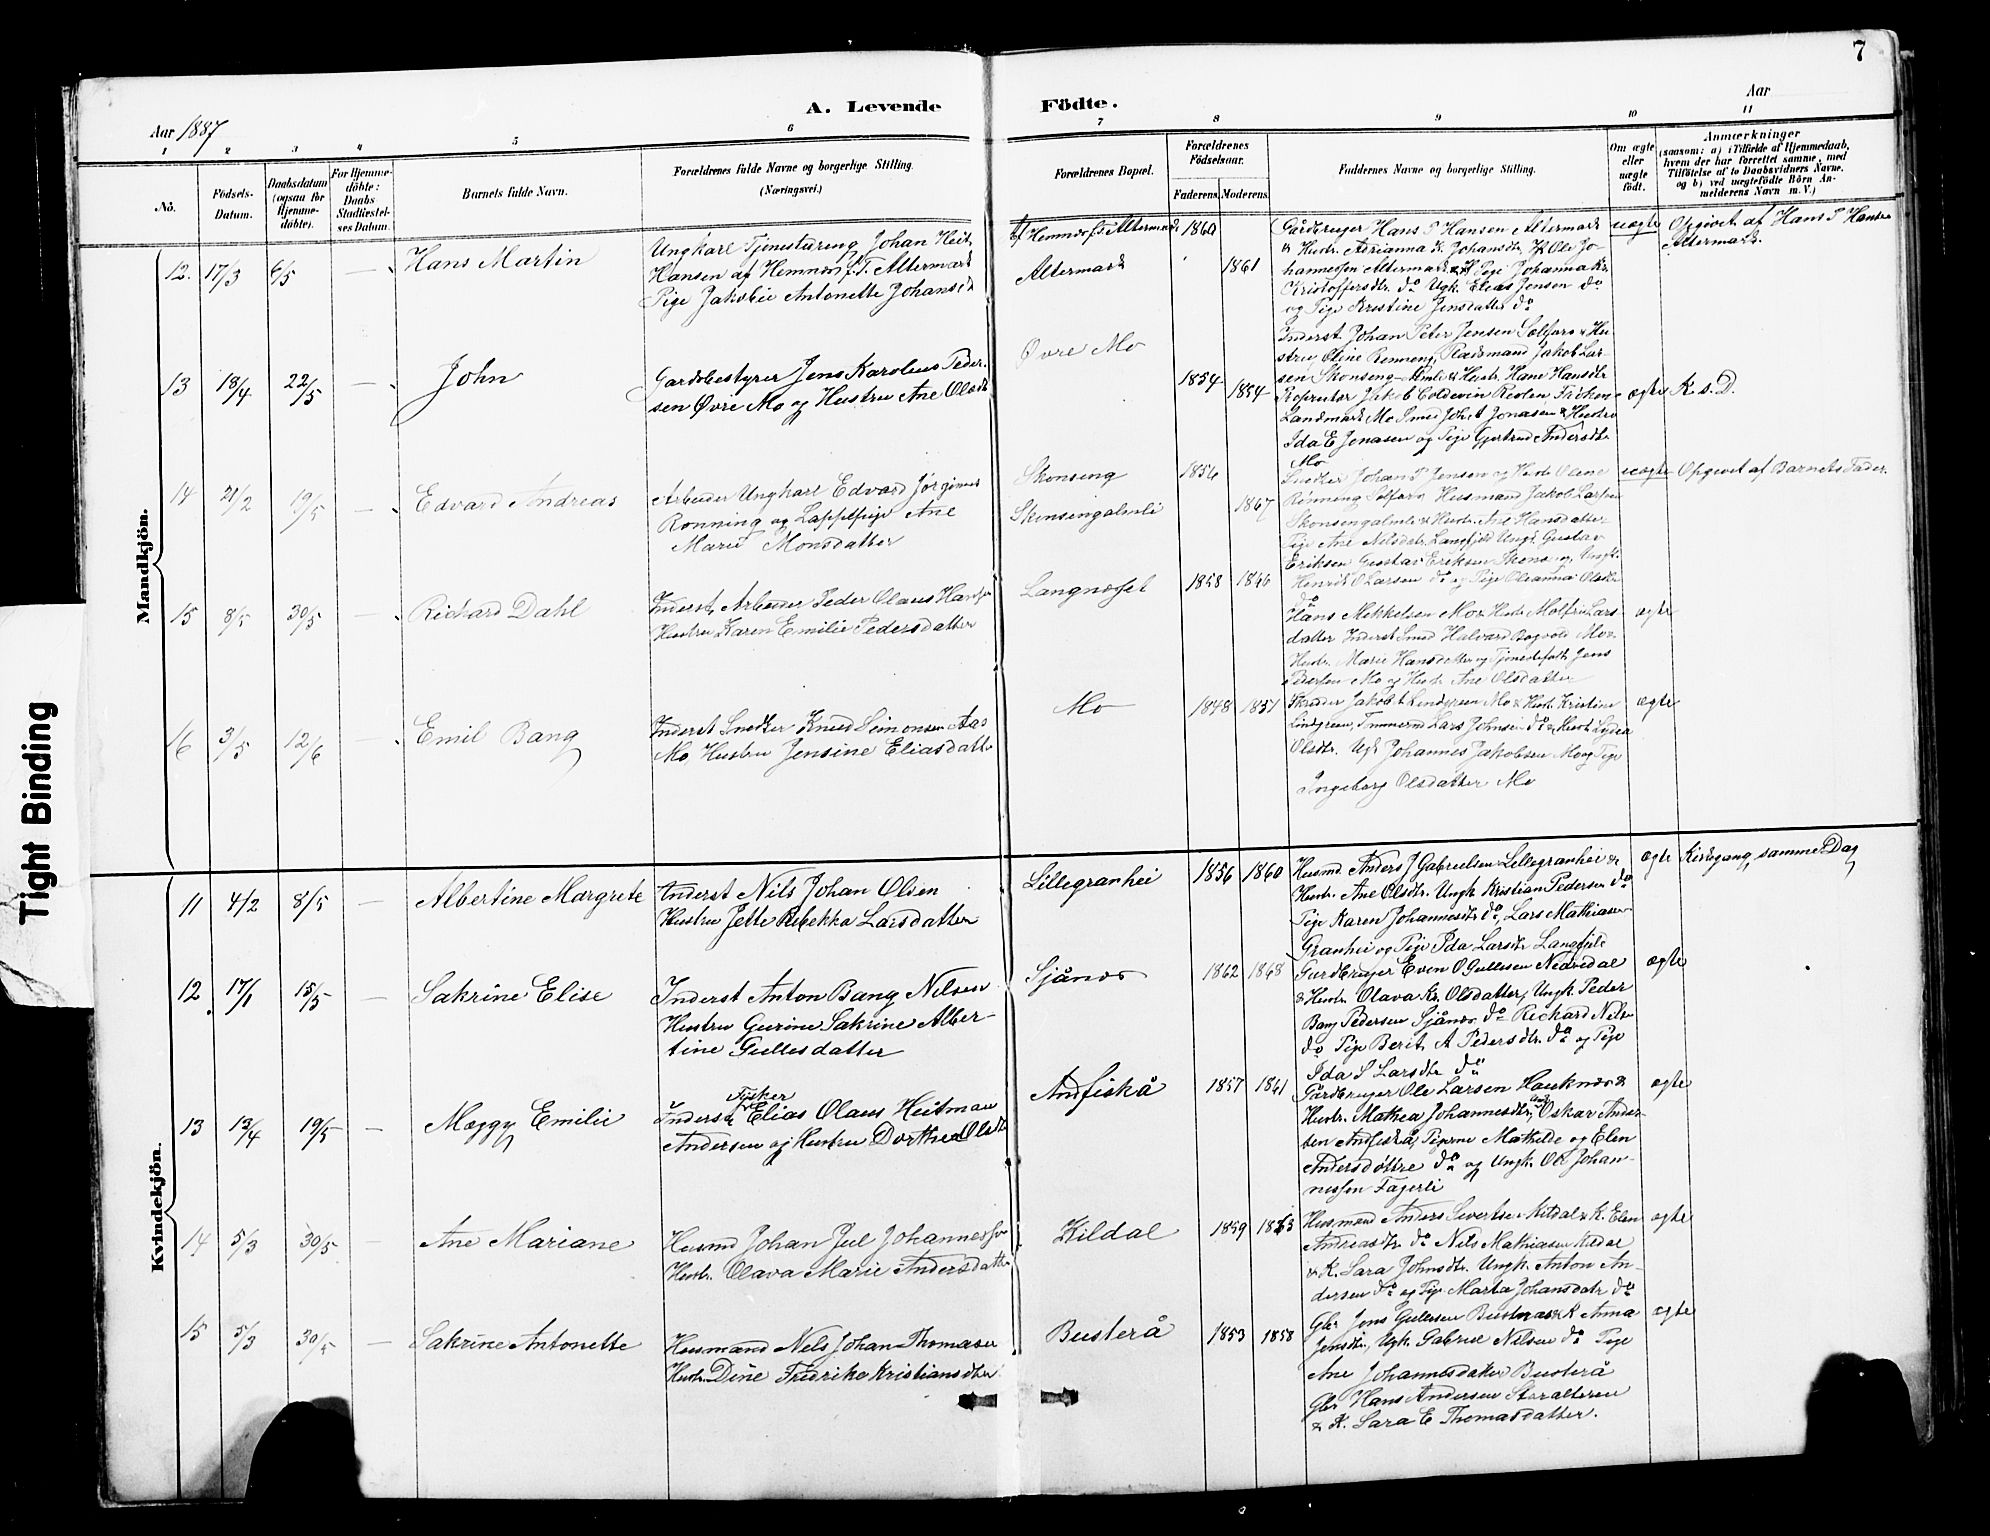 7
A. Levende Födte.
Aar 1887
Aar
1 2 3 4 5 6 7 8 9 10 11
Nô.
Födsels-
Datum.
Daabsdatum
(ogsaa for
Hjemme-
döbte).
For Hjemme-
döbte:
Daabs
Stadfæstel-
ses Datum.
Barnets fulde Navn.
Forældrenes fulde Navne og borgerlige Stilling.
(Næringsvei.)
Forældrenes Bopæl.
Forældrenes
Födselsaar.
Faderens. Moderens.
Faddernes Navne og borgerlige Stilling.
Om ægte
eller
uægte
födt.
Anmærkninger
(saasom: a) i Tilfælde af Hjemmedaab,
hvem der har forrettet samme, med
Tilföielse af to Daabsvidners Navne,
og b) ved uægtefödte Börn An-
melderens Navn m. V.)
Tight Binding
Mandkjön.
12. 17/3 6/5 — Hans Martin
Ungkarl Tjenestdreng Johan Heit
Hansen af Hemnæs f. T. Altermark
Pige Jakobie Antonette Johansd
af Hemnæs Altermark
Altermark
1860
1861
Gårdbruger Hans P Hansen Altermark
& Hustr. Arianna K. Johansdtr. Ole Jo-
hannessen Altermark Pige Johanna Kr.
Kristoffersdtr. do Ungk. Elias Jensen do
og Pige Kristine Jensdatter do
uægte
Opgivet af Hans P Hansen
Altermark.
13 18/4 22/5 — John
Gardsbestyrer Jens Karolius Peder-
sen Øvre Mo og Hustru Ane Olsdt
Øvre Mo
1854
1854
Inderst Johan Peter Jensen Selfors & Hu-
stru Oline Rønning, Pladsmand Jakob Lar-
sen Skonseng-Almli & Hustr. Hane Hansdtr
Proprietær Jakob Coldevin Revlen Frøken
Landmark Mo Smed Joh. A Jonasen & Hustru
Ida E Jonasen og Pige Gjertrud Andersdtr
Mo
ægte K. s. D.
14 21/2 19/5 — Edvard Andreas
Arbeider Ungkarl Edvard Jørginus
Rønning og Lappepige Ane
Marie Monsdatter
Skonseng
Skonsengalmli
1856
1867
Snedker Johan P Jensen og Hustr Olene
Rønning Selfors Husmand Jakob Larsen
Skonsengalmli & Hustr. Ane Hansdatter
Pige Ane Nilsdtr. Langfjeld Ungk. Gustav
Eriksen Gustav Eriksen Skonseng, Ungk.
Henrik O Larsen do og Pige Oleanna Olsdtr
do
uægte Opgivet af Barnets Fader.
15 8/5 30/5 — Richard Dahl
Inderst, Arbeider Peder Olaus Hansen
Hustru Karen Emilie Pedersdatter
Langnesset
1858 1846
Hans Mikkelsen Mo & Hustr Molfrid Lars-
datter Inderst Smed Halvard Bogvold Mo &
Hustr. Marie Hansdatter og Tjenestefolk Jens
Petersen Mo og Hustr. Ane Olsdatter
ægte
16 3/5 12/6 — Emil Bang
Inderst Snedker Knud Simonsen Aas
Mo, Hustru Jensine Eliasdatt
Mo
1848 1851
Skræder Jakob L Lindgreen Mo & Hustr Kristine
Lindgreen, Tømmermd Lars Johnsen do & Hustr Lydia
Olsdtr. Ugk Johannes Jakobsen Mo og Pige
Ingeborg Olsdatter Mo
ægte
Kvindekjön.
11 4/2 8/5 — Albertine Margrete
Inderst Nils Johan Olsen
Hustru Jette Rebekka Larsdatter
Lillegranhei
1856 1860
Husmd Anders J Gabrielsen Lillegranhei &
Hustr. Ane Olsdtr. Ungk Kristian Pedersen do
Pige Karen Johannesdtr do, Lars Mathiasen
Granhei og Pige Ida Larsdtr Langfjeld
ægte Kirkegang samme Dag
12 17/1 15/5 — Sakrine Elise
Inderst Anton Bang Nilsen
Hustru Gurine Sakrine Alber-
tine Gullesdatter
Sjånes
1862 1868
Gardbruger Even O Gullesen Nedredal
& Hustr. Olava Kr. Olsdatter, Ungk. Peder
Bang Pedersen Sjånes do Richard Nilsen
do Pige Berit A Pedersdtr. do og Pige
Ida S Larsdtr do
ægte
13 13/4 19/5 — Maggy Emilie
Fisker
Inderst Elias Olaus Heitman
Andersen og Hustru Dorthea Olsdt
Andfiskå
1857 1861
Gårdbruger Ole Larsen Hauknes &
Hustr. Mathea Johannesdtr, Oskar Ander-
sen Andfiskå, Pigerne Mathilde og Elen
Andersdøttre do og Ungk. Ole Johan-
nessen Fagerli
ægte
14 5/3 30/5 — Ane Mariane
Husmd Johan Juel Johannessen
Hustr. Olava Marie Andersdatt
Kildal
1859 1863
Husmand Anders Sivertsen Kildal & K. Elen
Andreasdtr do Nils Mathiasen Kildal
& K. Sara Johnsdtr. Ungk. Anton An-
dersen do og Pige Marta Johansdatr do
ægte
15 5/3 30/5 — Sakrine Antonette
Husmand Nils Johan Thomasen
Hustr. Dine Fredrike Kristiansdtr
Busterå
1853 1858
Gbr Jens Gullesen Busterå & K Anna
Jensdtr, Ugk. Gabriel Nilsen do Pige
Ane Johannesdatter Busterå
Gbr Hans Andersen Storalteren
& K. Sara E Thomasdatter.
ægte